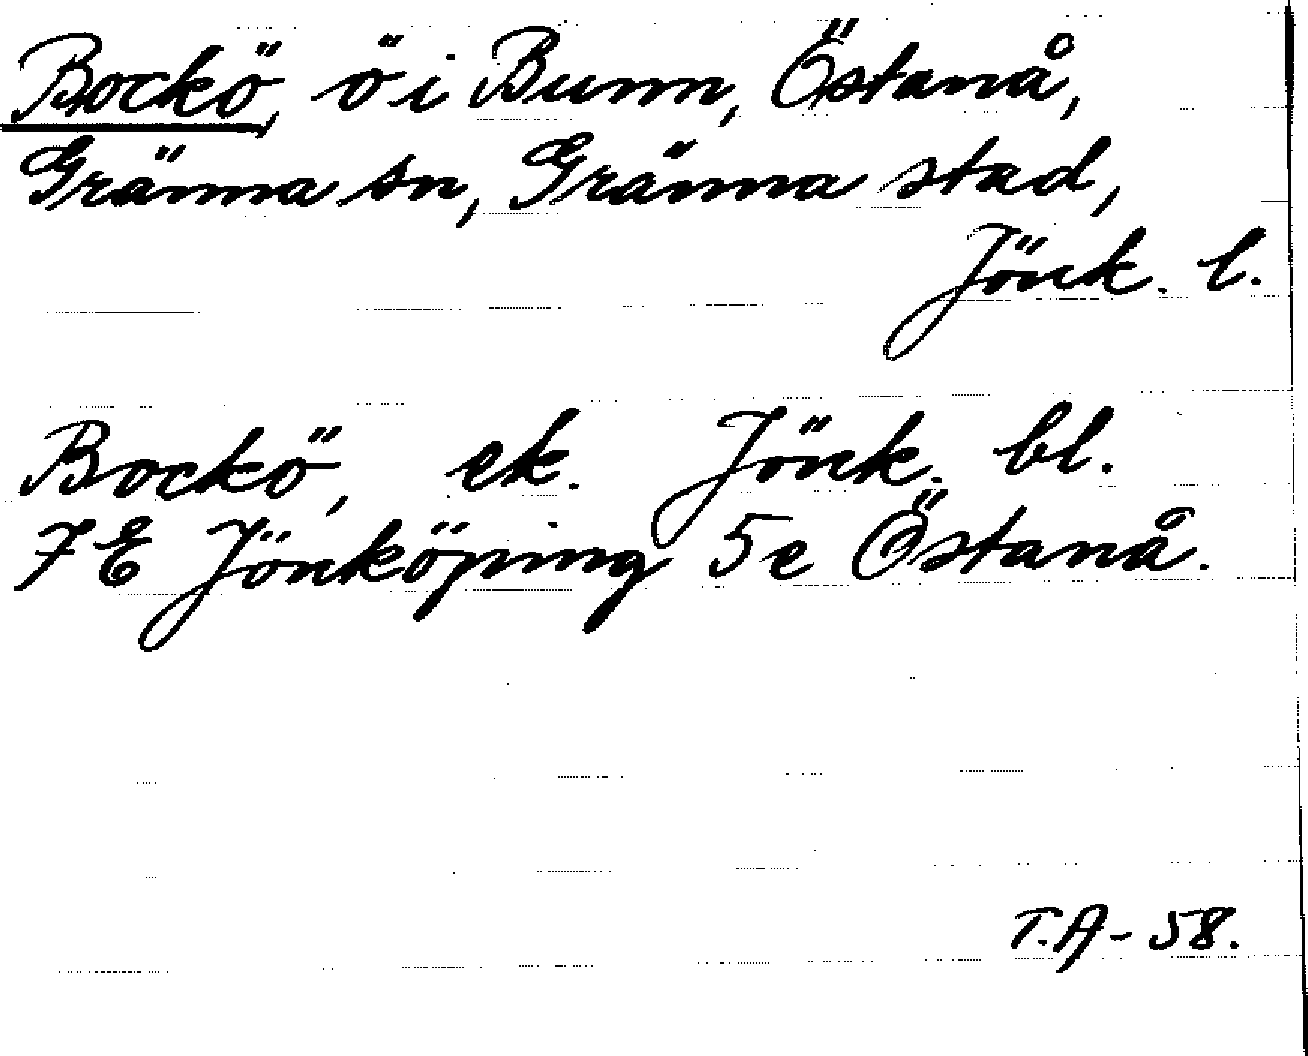 Bockö, ö i Bunn, Östanå,
Gränna sn, Gränna stad,
Jönk. l.
Bockö, ek. Jönk. bl.
7E Jönköping 5e Östanå.
T.A-58.